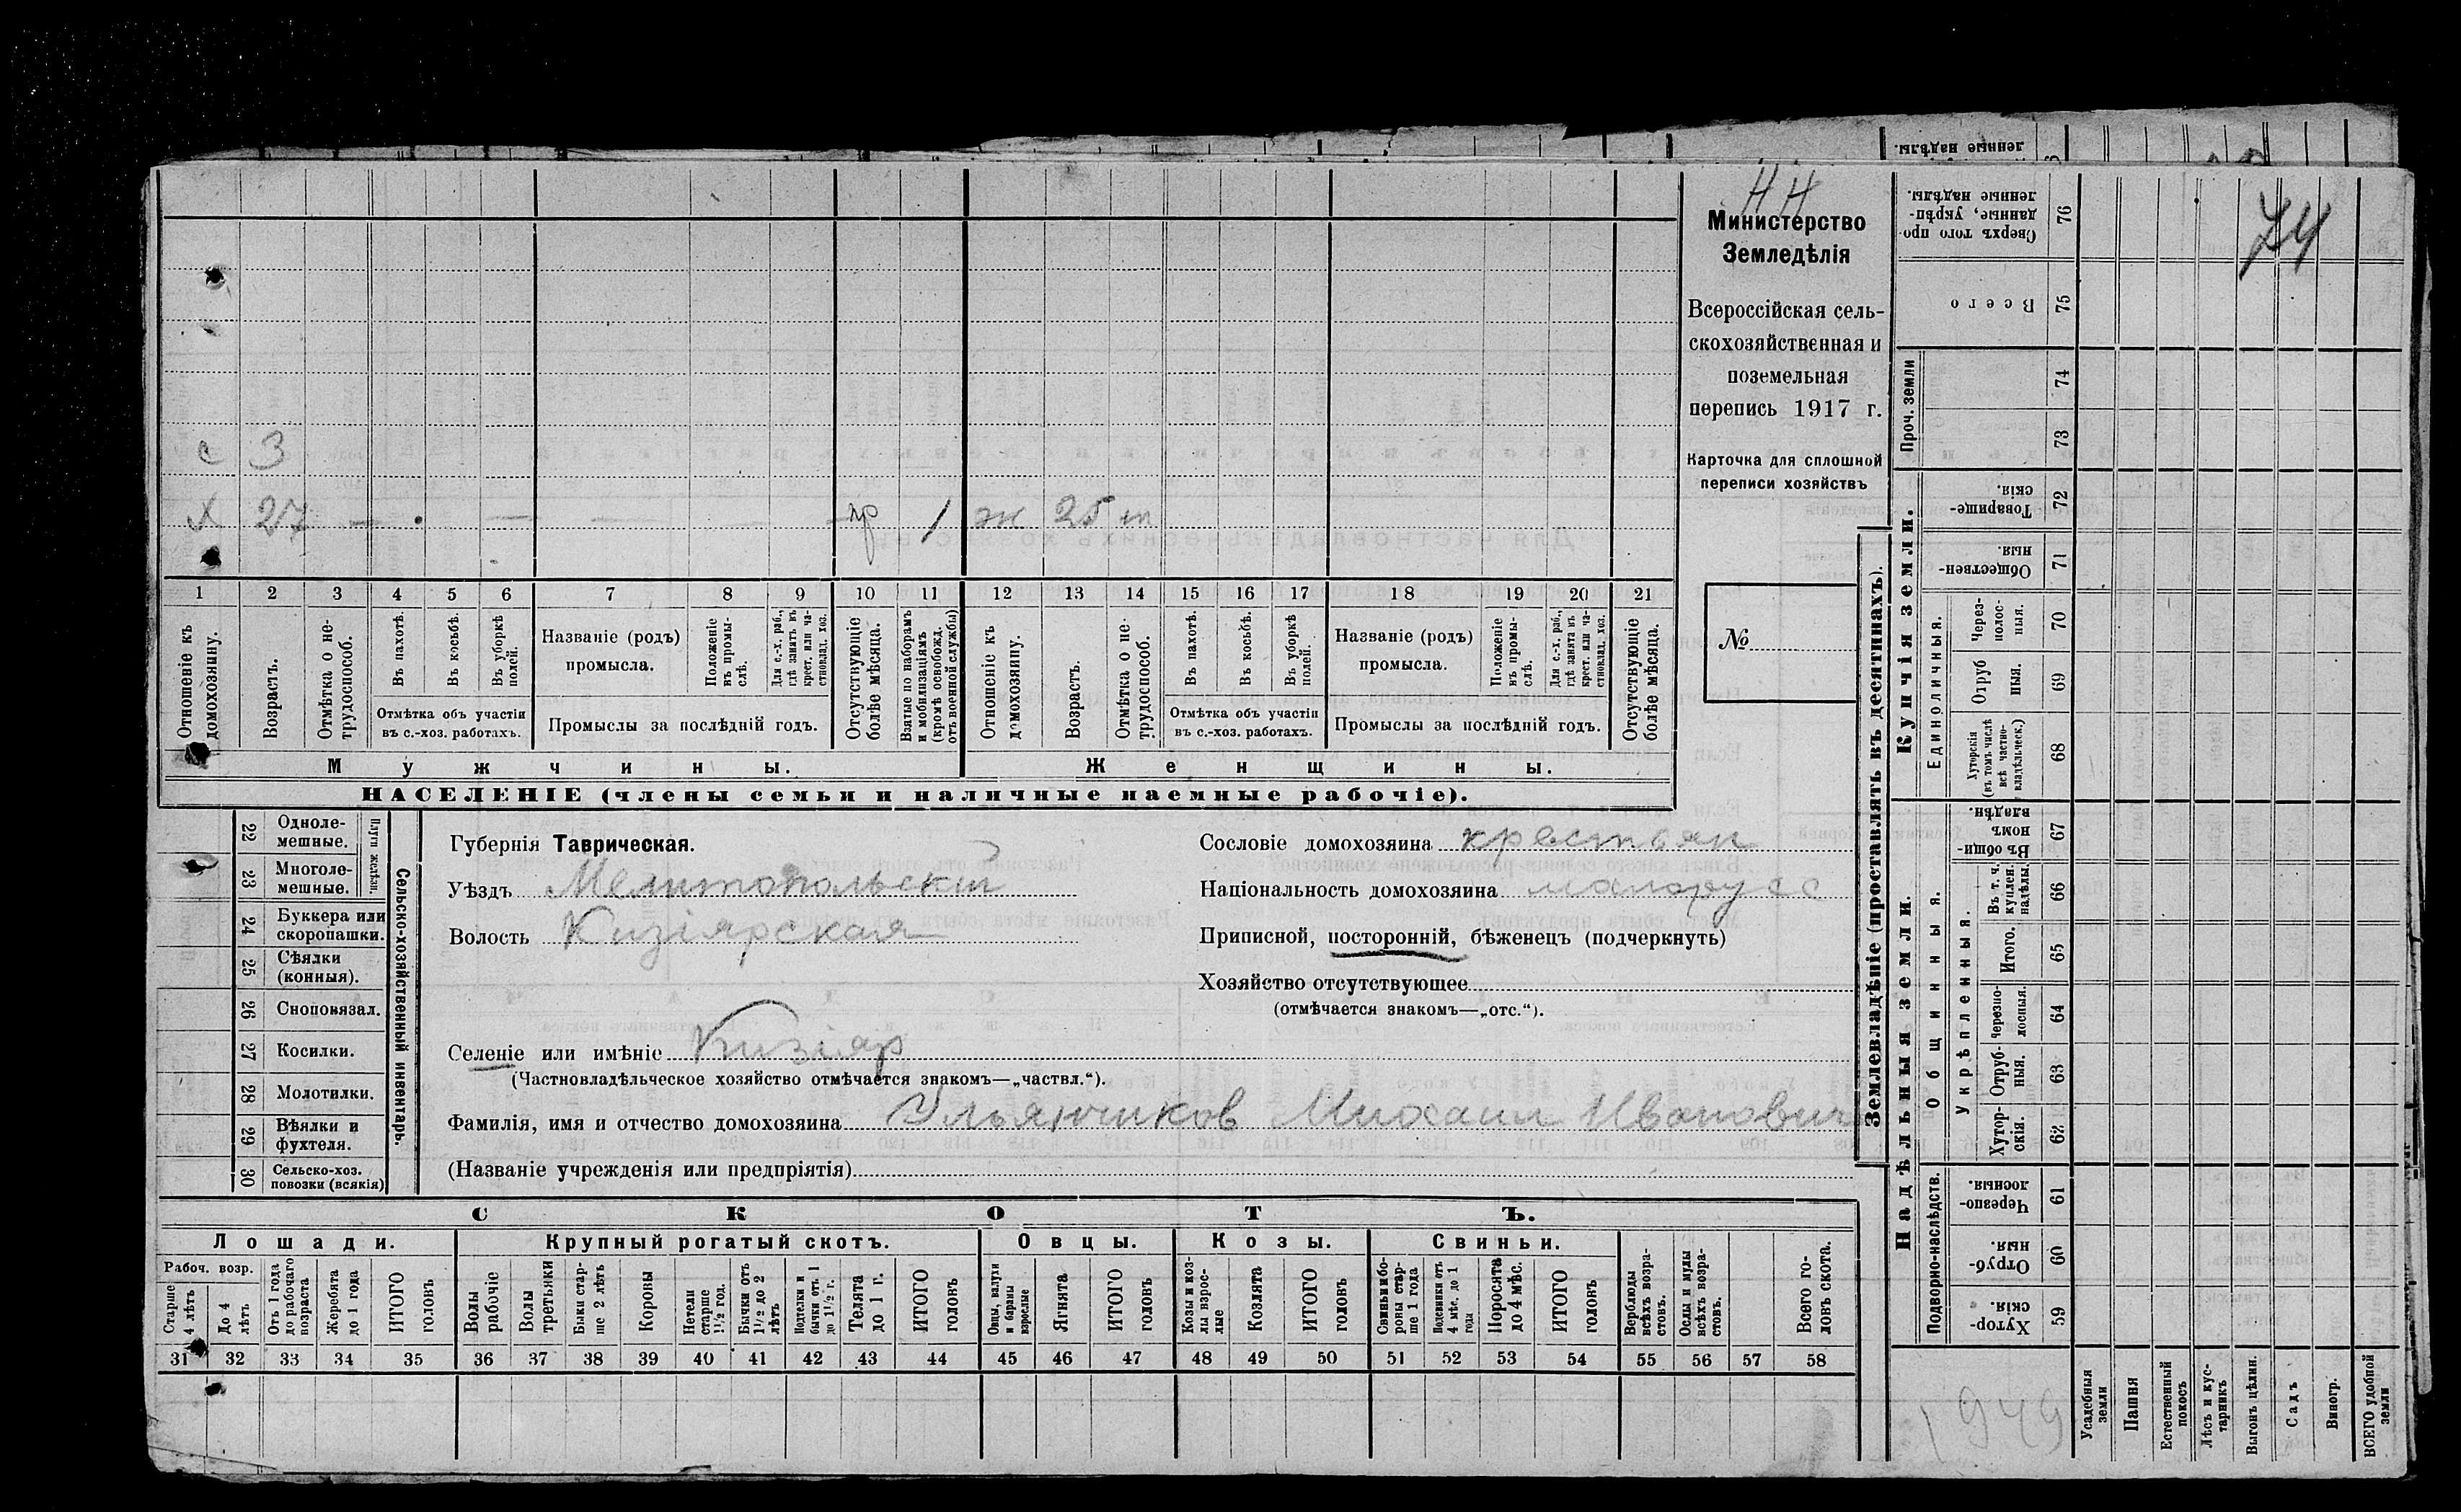 НН
Министерство
Земледѣлія
Всероссійская сель-
скохозяйственная и
поземельная
перепись 1917 г.
Карточка для сплошной
переписи хозяйствъ
№
74
с 3
х 27 — — — 1 ж 25
1 2 3 4 5 6 7 8 9 10 11 12 13 14 15 16 17 18 19 20 21
Отношеніе къ домохозяину.
Возрастъ.
Отмѣтка о не-трудоспособ.
Въ пахотѣ.
Въ косьбѣ.
Въ уборкѣ полей.
Отмѣтка объ участіи
въ с.-хоз. работахъ.
Названіе (родъ)
промысла.
Положеніе въ промы-слѣ.
Для с.-х. раб., гдѣ занятъ въ крест. или ча-стновлад. хоз.
Промыслы за послѣдній годъ.
Отсутствующіе болѣе мѣсяца.
Взятые по наборамъ и мобилизаціямъ (кромѣ освобожд. отъ военной службы)
Отношеніе къ домохозяину.
Возрастъ.
Отмѣтка о не-трудоспособ.
Въ пахотѣ.
Въ косьбѣ.
Въ уборкѣ полей.
Отмѣтка объ участіи
въ с.-хоз. работахъ.
Названіе (родъ)
промысла.
Положеніе въ промы-слѣ.
Для с.-х. раб., гдѣ занята въ крест. или ча-стновлад. хоз.
Промыслы за послѣдній годъ.
Отсутствующіе болѣе мѣсяца.
Мужчины.
Женщины.
НАСЕЛЕНІЕ (члены семьи и наличные наемные рабочіе).
22 Однолемешные.
23 Многолемешные.
Плуги желѣзн.
24 Буккера или скоропашки.
25 Сѣялки (конныя).
26 Сноповязал.
27 Косилки.
28 Молотилки.
29 Вѣялки и фухтеля.
30 Сельско-хоз. повозки (всякія)
Сельско-хозяйственный инвентарь.
Губернія Таврическая.
Уѣздъ Мелитопольскій
Волость Кизіярская
Сословіе домохозяина крестьян
Національность домохозяина малорусс
Приписной, посторонній, бѣженецъ (подчеркнуть)
Хозяйство отсутствующее
(отмѣчается знакомъ—„отс.“).
Селеніе или имѣніе Кизіяр
(Частновладѣльческое хозяйство отмѣчается знакомъ—„частвл.“).
Фамилія, имя и отчество домохозяина Ульянчиков Михаил Иванович
(Названіе учрежденія или предпріятія)
СКОТЪ.
Лошади. Крупный рогатый скотъ. Овцы. Козы. Свиньи.
Рабоч. возр.
Старше 4 лѣтъ
До 4 лѣтъ
Отъ 1 года до рабочаго возраста
Жеребята до 1 года
ИТОГО головъ
Волы рабочіе
Волы третьяки
Быки стар-ше 2 лѣтъ
Коровы
Нетели старше 1½ год.
Бычки отъ 1½ до 2 лѣтъ
Подтелки и бычки отъ 1 до 1½ г.
Телята до 1 г.
ИТОГО головъ
Овцы, валухи и бараны взрослые
Ягнята
ИТОГО головъ
Козы и коз-лы взрос-лые
Козлята
ИТОГО головъ
Свиньи и бо-ровы стар-ше 1 года
Подсвинки отъ 4 мѣс. до 1 года
Поросята до 4 мѣс.
ИТОГО головъ
Верблюды всѣхъ возра-стовъ.
Ослы и мулы всѣхъ возра-стовъ.
Всего го-ловъ скота.
31 32 33 34 35 36 37 38 39 40 41 42 43 44 45 46 47 48 49 50 51 52 53 54 55 56 57 58
Землевладѣніе (проставлять въ десятинахъ).
Купчія земли.
Надѣльныя земли.
Сверхъ того про-данные, укрѣп-ленные надѣлы. 76
Всего 75
Проч. земли
74
73
Товарище-скія. 72
Обществен-ныя. 71
Единоличныя.
Через-полос-ныя. 70
Отруб ныя. 69
Хуторскія (въ томъ числѣ всѣ частно-владѣльческ.) 68
Общинныя.
Въ общин-номъ владѣн. 67
Въ т. ч. куплен. надѣлы. 66
Укрѣпленныя.
Итого. 65
Черезпо-лосныя. 64
Отруб-ныя. 63
Хутор-скія. 62
Подворно-наслѣдств.
Черезпо-лосныя. 61
Отруб-ныя. 60
Хутор-скія. 59
1949
Усадебныя земли
Пашня
Естественный покосъ
Лѣсъ и кус-тарникъ
Выгонъ цѣлин.
Садъ
Виногр.
ВСЕГО удобной земли